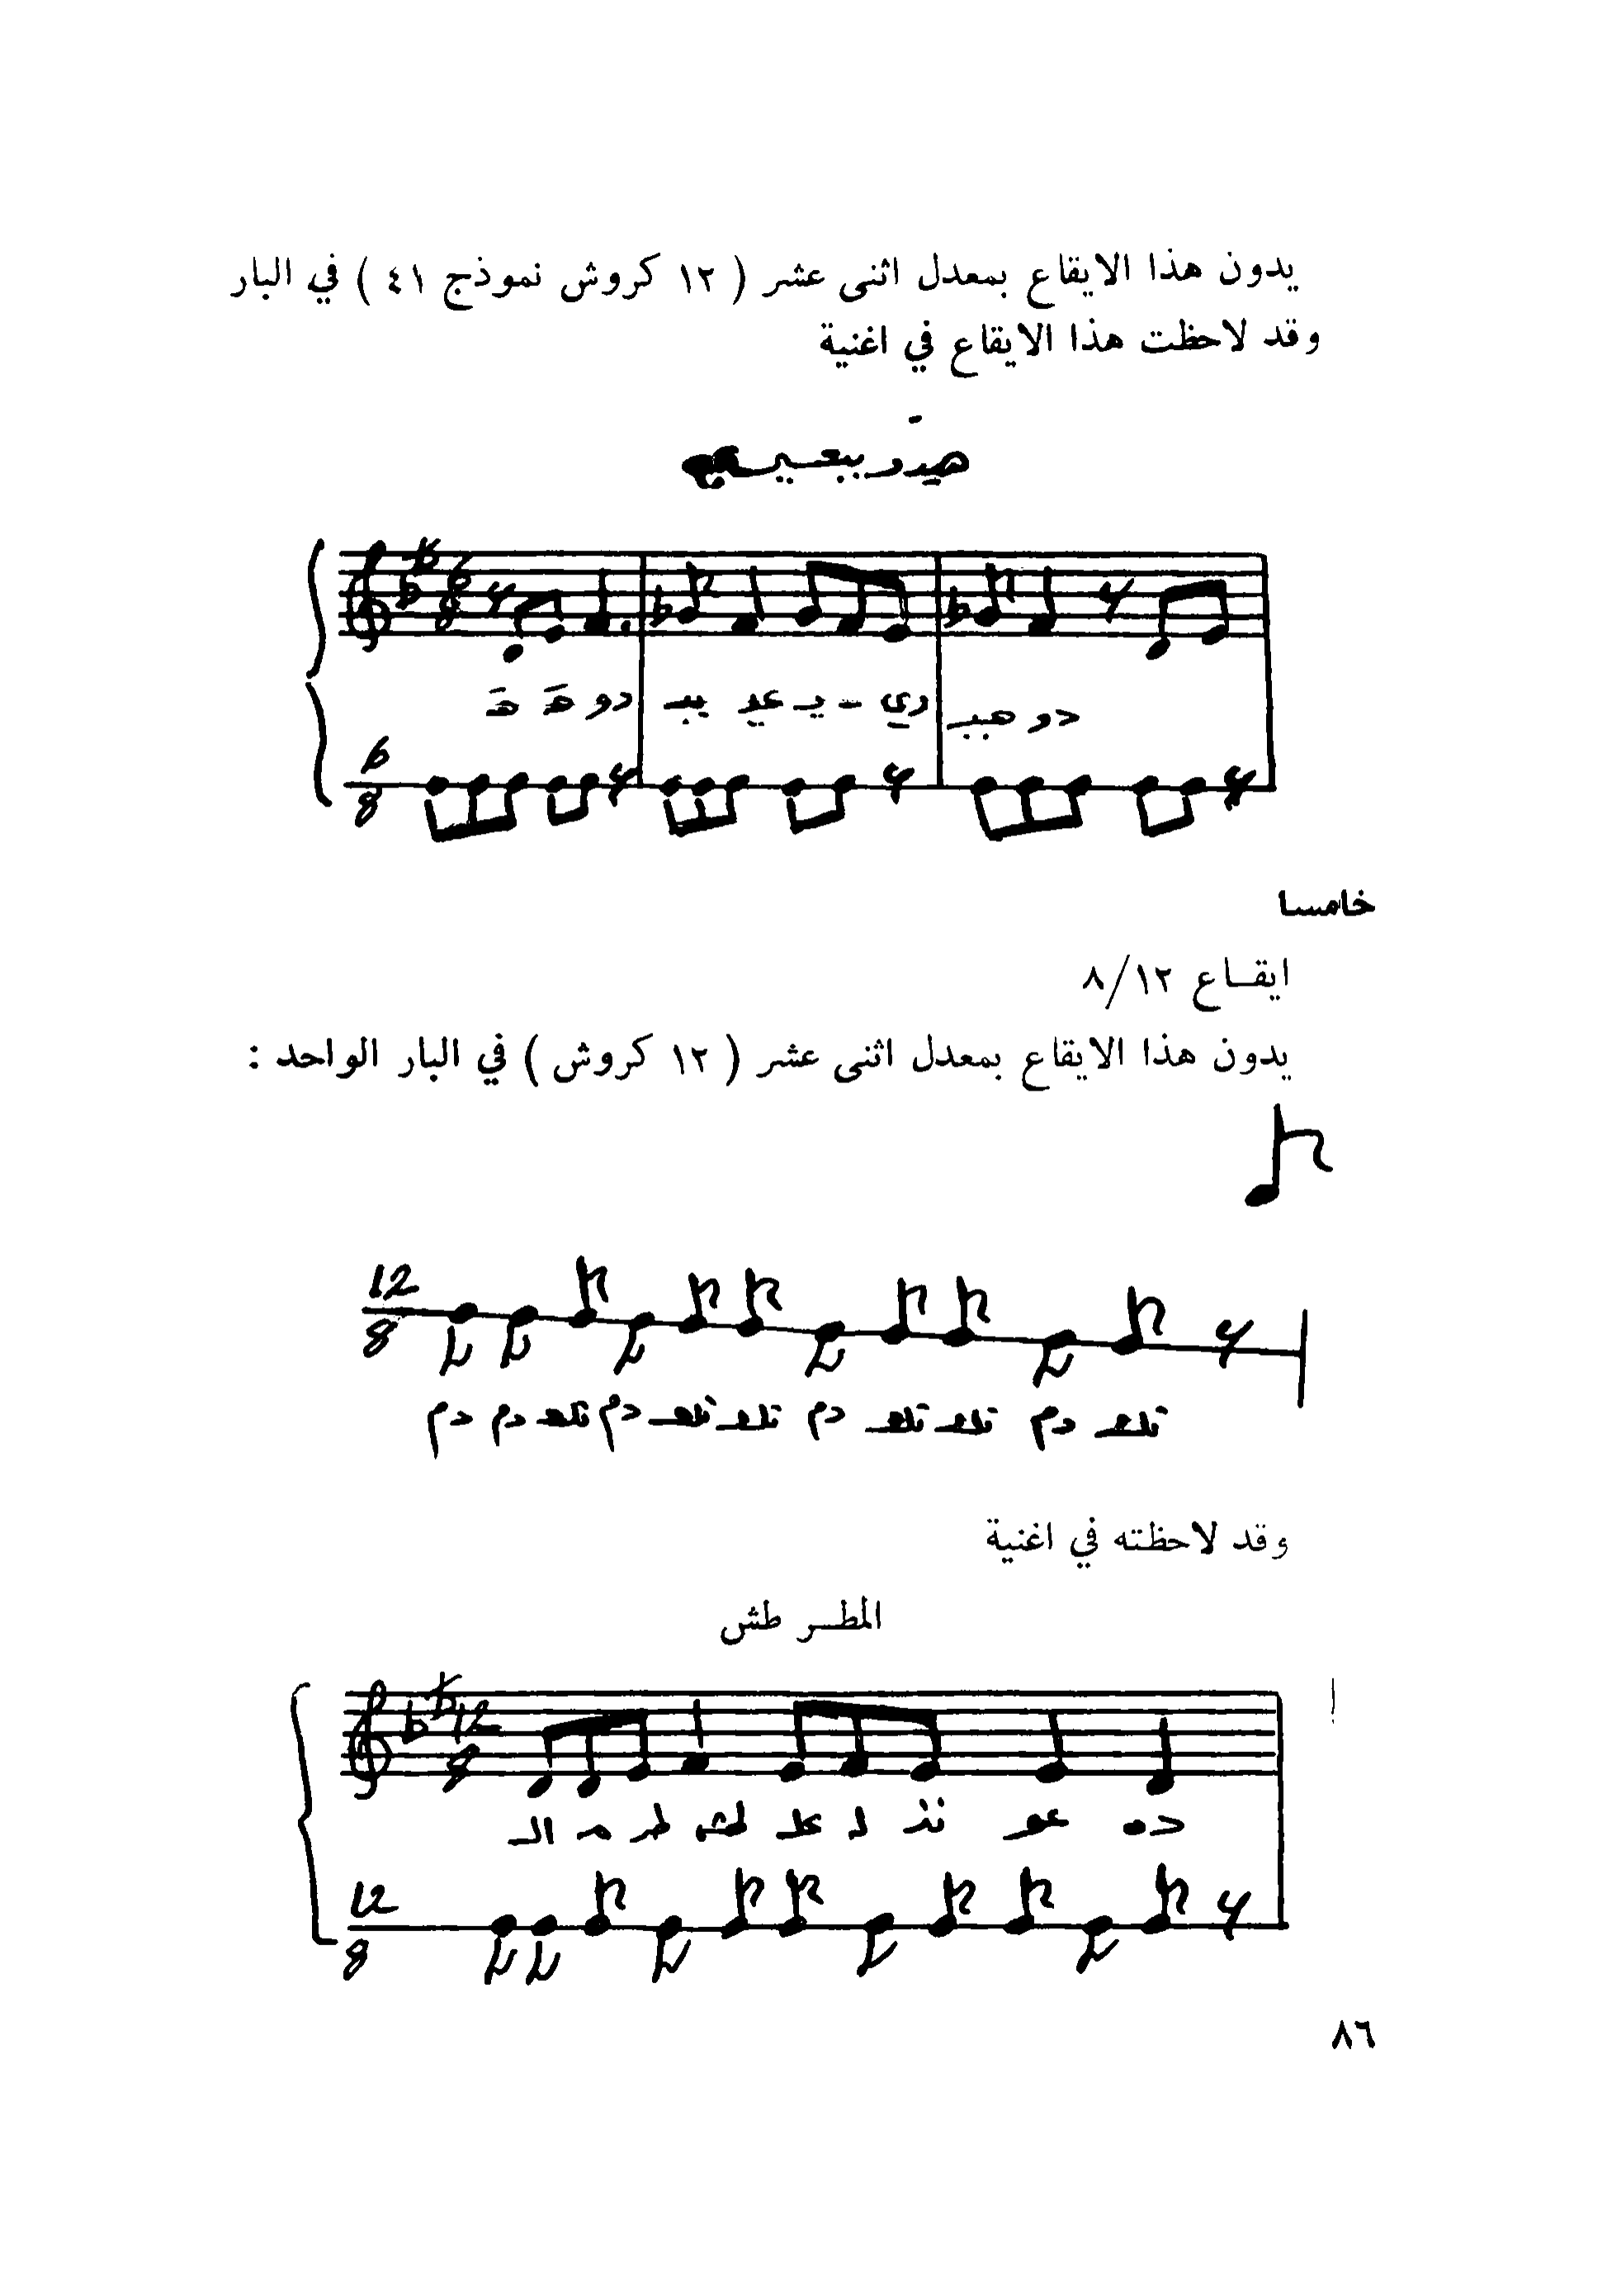 يدون هذا الايقاع بمعدل اثنى عشر ( ١٢ كروش نموذج ٤١ ) في البار
وقد لاحظت هذا الايقاع في اغنية
6
8
دو
6
8
خامسا
ايقـاع ٨/١٢
يدون هذا الايقاع بمعدل اثنى عشر ( ١٢ كروش ) في البار الواحد :
12
8
دم دم تك دم تك تك دم تك تك دم تك
وقد لاحظته في اغنية
المطـر طش
12
8
12
8
٨٦